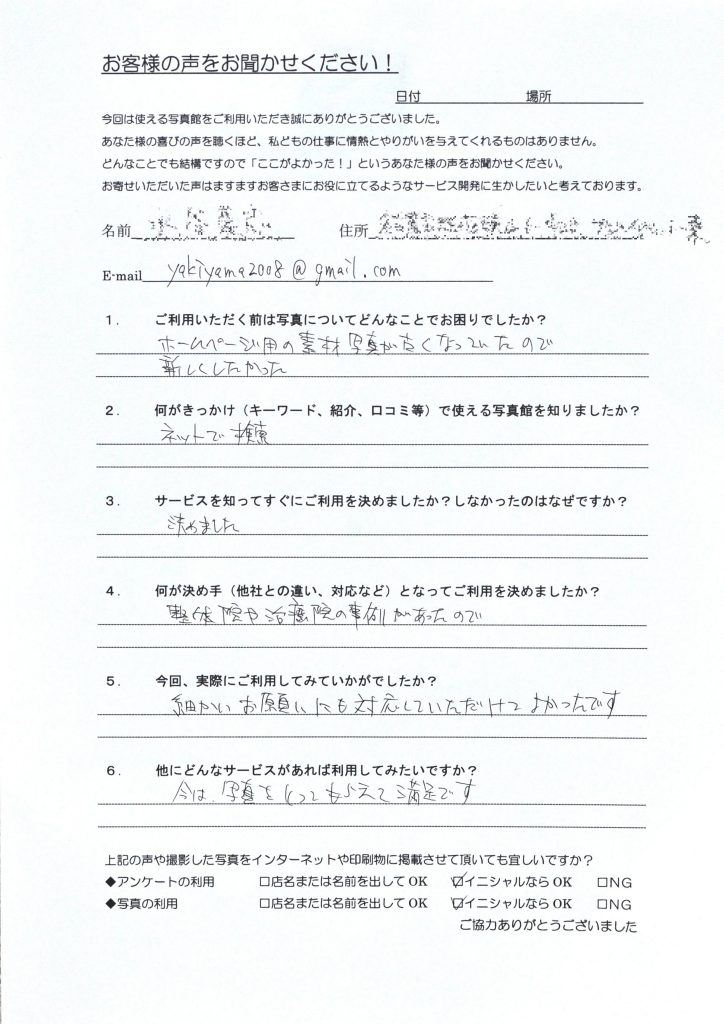 お客様の声をお聞かせください！
日付 場所
今回は使える写真館をご利用いただき誠にありがとうございました。
あなた様の喜びの声を聴くほど、私どもの仕事に情熱とやりがいを与えてくれるものはありません。
どんなことでも結構ですので「ここがよかった！」というあなた様の声をお聞かせください。
お寄せいただいた声はますますお客さまにお役に立てるようなサービス開発に生かしたいと考えております。
名前 住所
E-mail yakiyama2008@gmail.com
１． ご利用いただく前は写真についてどんなことでお困りでしたか？
ホームページ用の素材写真が古くなっていたので
新しくしたかった
２． 何がきっかけ（キーワード、紹介、口コミ等）で使える写真館を知りましたか？
ネットで検索
３． サービスを知ってすぐにご利用を決めましたか？しなかったのはなぜですか？
決めました
４． 何が決め手（他社との違い、対応など）となってご利用を決めましたか？
整体院や治療院の事例があったので
５． 今回、実際にご利用してみていかがでしたか？
細かいお願いにも対応していただけてよかったです
６． 他にどんなサービスがあれば利用してみたいですか？
今は、写真をとってもらえて満足です
上記の声や撮影した写真をインターネットや印刷物に掲載させて頂いても宜しいですか？
◆アンケートの利用 □店名または名前を出してOK ☑イニシャルならOK □NG
◆写真の利用 □店名または名前を出してOK ☑イニシャルならOK □NG
ご協力ありがとうございました